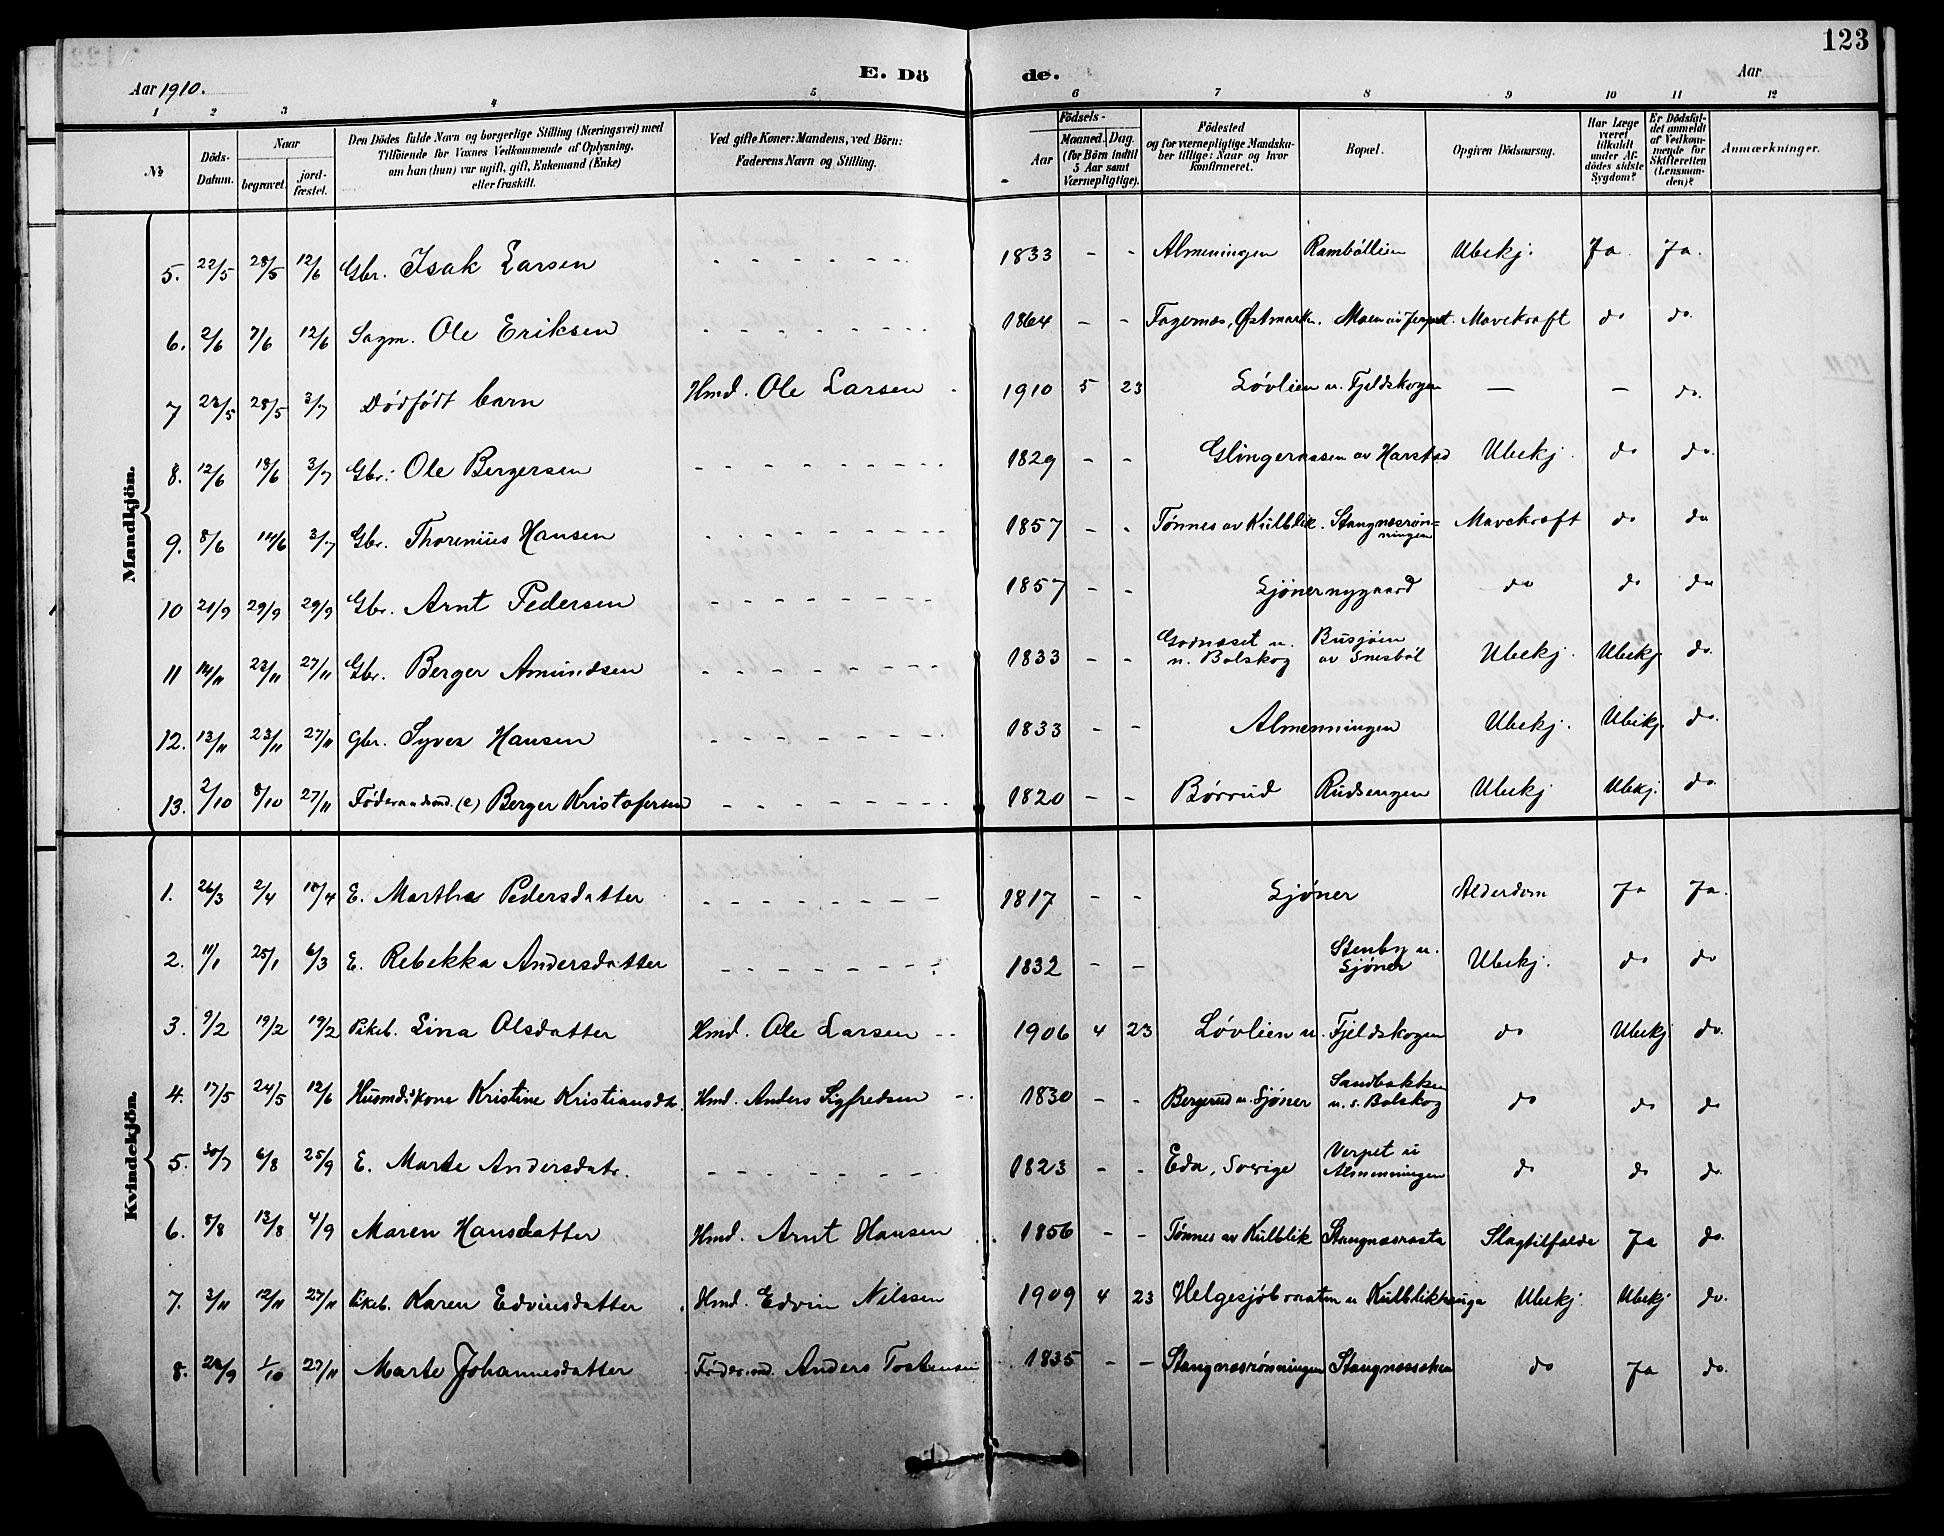 123
E. Dö de.
Aar 1910. Aar
1 2 3 4 5 6 7 8 9 10 11 12
№ Döds-Datum. Naar begravet. jord-fæstet. Den Dödes fulde Navn og borgerlige Stilling (Næringsvei) med Tilföiende for Voxnes Vedkommende af Oplysning, om han (hun) var ugift, gift, Enkemand (Enke) eller fraskilt. Ved gifte Koner: Mandens, ved Börn: Faderens Navn og Stilling. Födsels- Aar Maaned. Dag. (for Börn indtil 5 Aar samt Værnepligtige). Födested og for værnepligtige Mandskaber tillige: Naar og hvor konfirmeret. Bopæl. Opgiven Dödsaarsag. Har Læge været tilkaldt under Afdödes sidste Sygdom? Er Dödsfaldet anmeldt af Vedkommende for Skifteretten (Lensmanden)? Anmærkninger.
Mandkjön.
5. 22/5 28/5 12/6 Gbr. Isak Larsen - - - - - - 1833 - - Almeningen Ramböllien Ubekj. Ja. Ja.
6. 2/6 7/6 12/6 Sagm. Ole Eriksen - - - - - - - 1864 - - Fagernæs, Østmark. Moen av Mavekræft do do.
7 23/5 28/5 3/7 Dødfødt barn Hmd. Ole Larsen - 1910 5 23 Løvlien u. Fjeldskogen — — do.
8. 12/6 18/6 3/7 Gbr. Ole Bergersen - - - - - - - - 1829 - - av Harstad Ubekj. do do.
9. 8/6 14/6 3/7 Gbr. Thorenius Hansen - - - - - - - - 1857 - - Tønnes av Kulblik. Stangnæsrønningen Mavekræft do do
10 21/9 29/9 29/9 Gbr. Arnt Pedersen - - - - - - - - 1857 - - Sjønernygaard do do do
11 14/11 23/11 27/11 Gbr. Berger Amundsen - - - - - - - - 1833 - - Godnæset u. n. Bolskog Busjøen av Snesböl Ubekj. Ubekj. do.
12. 13/11 23/11 27/11 Gbr. Syver Hansen - - - - - - - - 1833 - - Almenningen Ubekj. Ubekj. do.
13. 2/10 8/10 27/11 Føderaadsmd. (e) Berger Kristofersen - - - - - - - - 1820 - - Børrud Rudsengen Ubekj Ubekj. do.
Kvindekjön.
1. 26/3 2/4 10/4 E. Martha Pedersdatter - - - - - - - - 1817 - - Sjøner Alderdom Ja Ja.
2. 11/1 25/1 6/3 E. Rebekka Andersdatter - - - - - - - - 1832 - - Stenby u. Sjøner Ubekj. do do
3. 9/2 19/2 19/2 Pikeb. Lina Olsdatter Hmd. Ole Larsen - - 1906 4 23 Løvlien u. Fjeldskogen do Ubekj do.
4. 17/5 24/5 12/6 Husmds kone Kristine Kristiansdt. Hmd. Anders Sigfredsen - - 1830 - - Bergerud u. Sjøner Sandbakken u. s. Bolskog do do do
5. 30/7 6/8 25/9 E. Marte Andersdatr. - - - - - - - - 1823 - - Eda, Sverige Verpet u Almenningen do do do.
6. 8/8 13/8 4/9 Maren Hansdatter Hmd. Arnt Hansen - 1856 - - Tønnes av Kulblik Stangnæsrøsta Slagtilfælde Ja do.
7. 3/11 12/11 27/11 Pikeb. Karen Edvinsdatter Hmd. Edvin Nilssen 1909 4 23 Helgesjøbraaten u Kulblikhauga Ubekj. Ubekj do.
8. 22/9 1/10 27/11 Marte Johannesdatter Føder.md. Anders Tostensen 1835 - - Stangnæsrønningen Stangnæssæteren do Ja do.